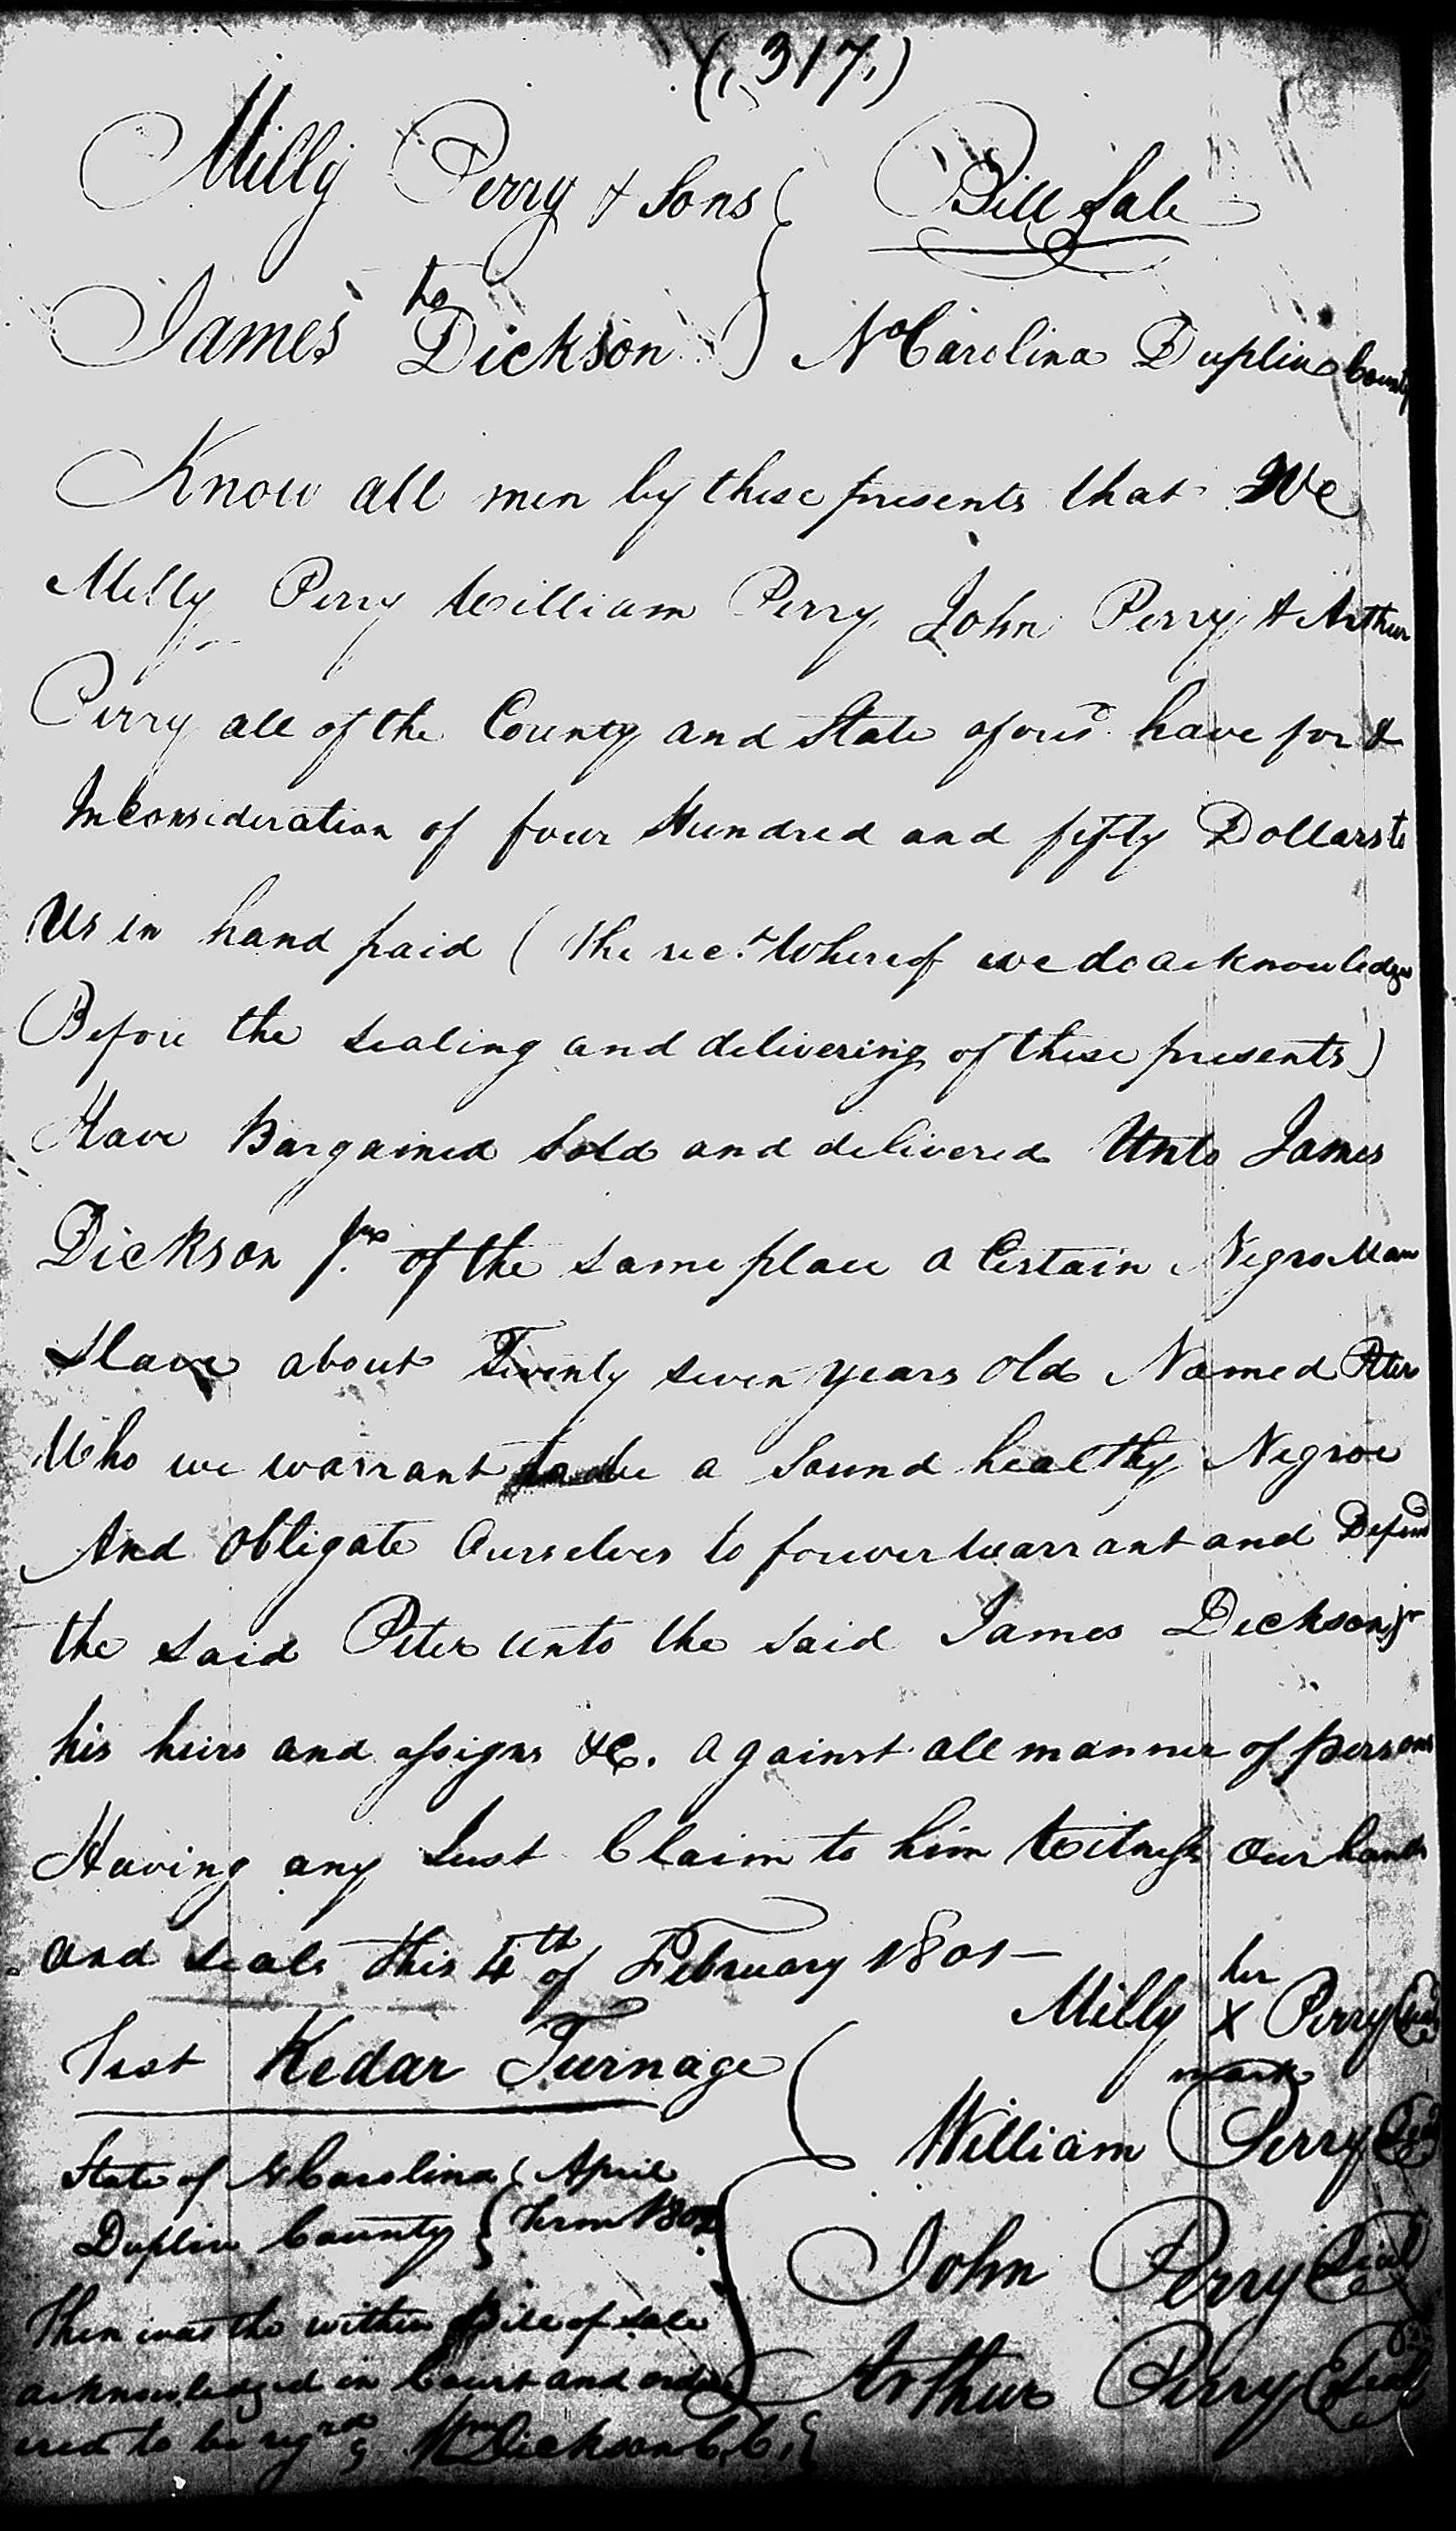 (, 317,)
Milly Perry & Sons Bill Sale
to
James Dickson No Carolina Duplin County
Know all men by these presents that We
Milly Perry William Perry John Perry & Arthur
Perry all of the County and State afores.d have for &
In Consideration of four Hundred and fifty Dollars to
Us in hand paid (the rec.t Whereof we do acknowledge
Before the sealing and delivering of these presents)
Have Bargained Sold and delivered Unto James
Dickson of the same place a Certain Negro Man
Slave about Twenty seven years Old Named Peter
Who we warrant to be a Sound healthy Negroe
And Obligate Ourselves to forever warrant and Defend
the said Peter unto the said James Dickson jr
his heirs and assigns &C. against all manner of persons
Having any Just Claim to him Witness Our hands
and seals this 4th of February 1801 —
her
Milly X Perry Seal
mark
Test Kedar Turnage
William Perry Seal
State of N Carolina April
Duplin County Term
John Perry Seal
Then was the within Bill of sale
acknowledged in Court and ord
Arthur Perry Seal
ered to be regrd Wm Dickson C.C.